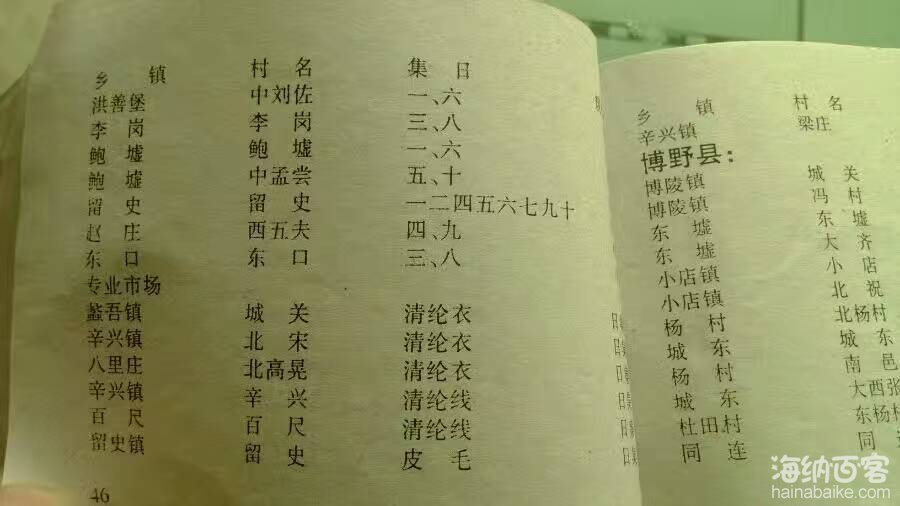 乡 镇 村 名 集 日
洪善堡 中刘佐 一、六
李 岗 李 岗 三、八
鲍 墟 鲍 墟 一、六
鲍 墟 中孟尝 五、十
留 史 留 史 一二四五六七九十
赵 庄 西五夫 四、九
东 口 东 口 三、八
专业市场
蠡吾镇 城 关 清纶衣
辛兴镇 北 宋 清纶衣
八里庄 北高晃 清纶衣
辛兴镇 辛 兴 清纶线
百 尺 百 尺 清纶线
留史镇 留 史 皮 毛
46
乡 镇 村 名
辛兴镇 梁庄
博野县：
博陵镇 城 关
博陵镇 冯 村
东 墟 东 墟
东 墟 大 齐
小店镇 小 店
小店镇 北 祝
杨 村 北杨村
城 东 城 东
杨 村 南 邑
城 东 大西张
杜田村 东杨村
同 连 同 连
海纳百客
hainabaike.com